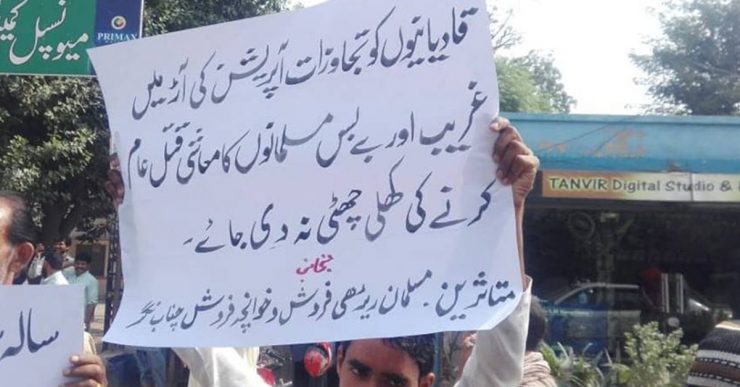 میونسپل کمیٹی
PRIMAX
قادیانیوں کو تجاوزات آپریشن کی آڑ میں
غریب اور بے بس مسلمانوں کا معاشی قتل عام
کرنے کی کھلی چھٹی نہ دی جائے۔
منجانب
متاثرین۔ مسلمان ریڑھی فروش و خوانچہ فروش چناب نگر
TANVIR Digital Studio &
سالہ